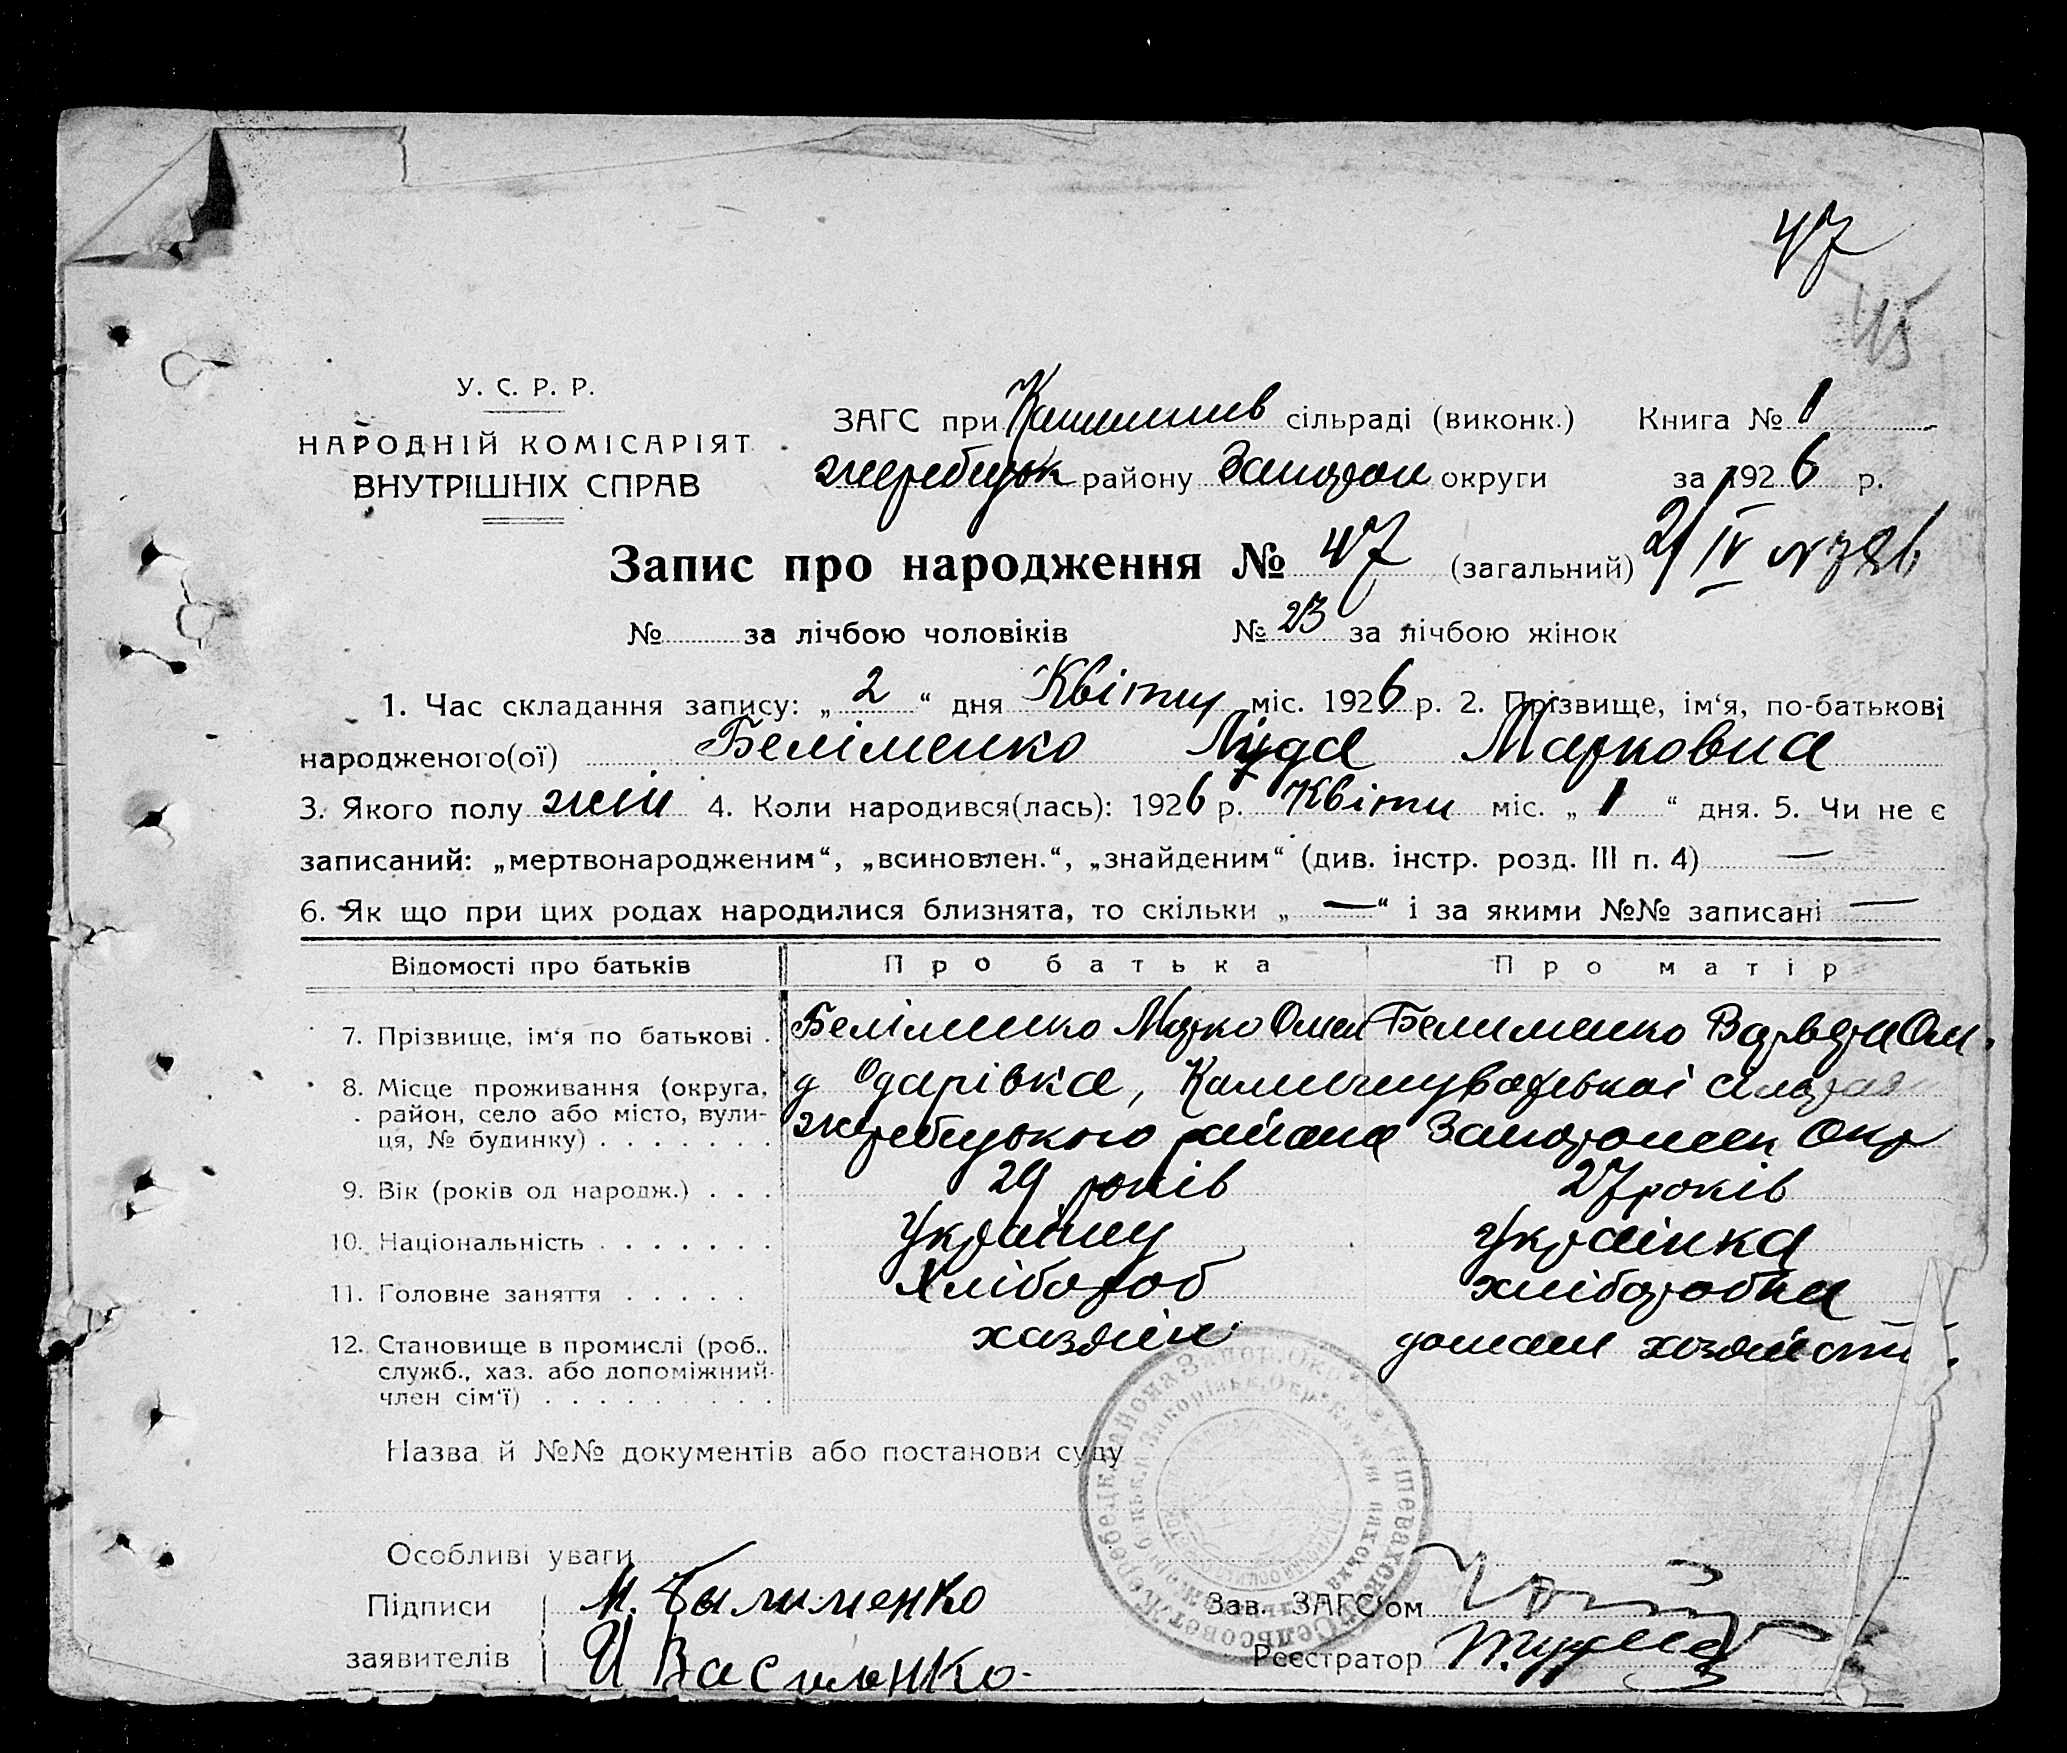 47
45
У. С. Р. Р.
НАРОДНІЙ КОМІСАРІЯТ
ВНУТРІШНІХ СПРАВ
ЗАГС при сільраді (виконк.) Книга № 1
жеребцьк району Запорож округи за 1926 р.
Запис про народження № 47 (загальний) 2/IV
№ за лічбою чоловіків № 23 за лічбою жінок
1. Час складання запису: „ 2 “ дня Квітня міс. 1926 р. 2. Прізвище, ім‘я, по-батькові
народженого(ої) Беліменко Лида Марковна
3. Якого полу жін 4. Коли народився(лась): 1926 р. Квітн міс. „ 1 “ дня. 5. Чи не є
записаний: „мертвонародженим“, „всиновлен.“, „знайденим“ (див. інстр. розд. III п. 4) —
6. Як що при цих родах народилися близнята, то скільки „ — “ і за якими №№ записані —
Відомості про батьків Про батька Про матір
7. Прізвище, ім‘я по батькові . Беліменко Марко Омел Белименко Варвара Ом.
8. Місце проживання (округа, д Одарівка,
район, село або місто, вули- жеребцького району Запорожськ Окр
ця, № будинку) . . . . . . .
9. Вік (років од народж.) . . . 29 років 27 років
10. Національність . . . . . . . Українц Українка
11. Головне заняття . . . . . Хлібороб хліборобка
12. Становище в промислі (роб., хазяїн домашн хозяйств.
служб., хаз. або допоміжний
член сім‘ї) . . . . . . . . .
Назва й №№ документів або постанови суду
Особливі уваги
Підписи М. Былименко Зав. ЗАГС‘ом
заявителів И Василенко. Реєстратор